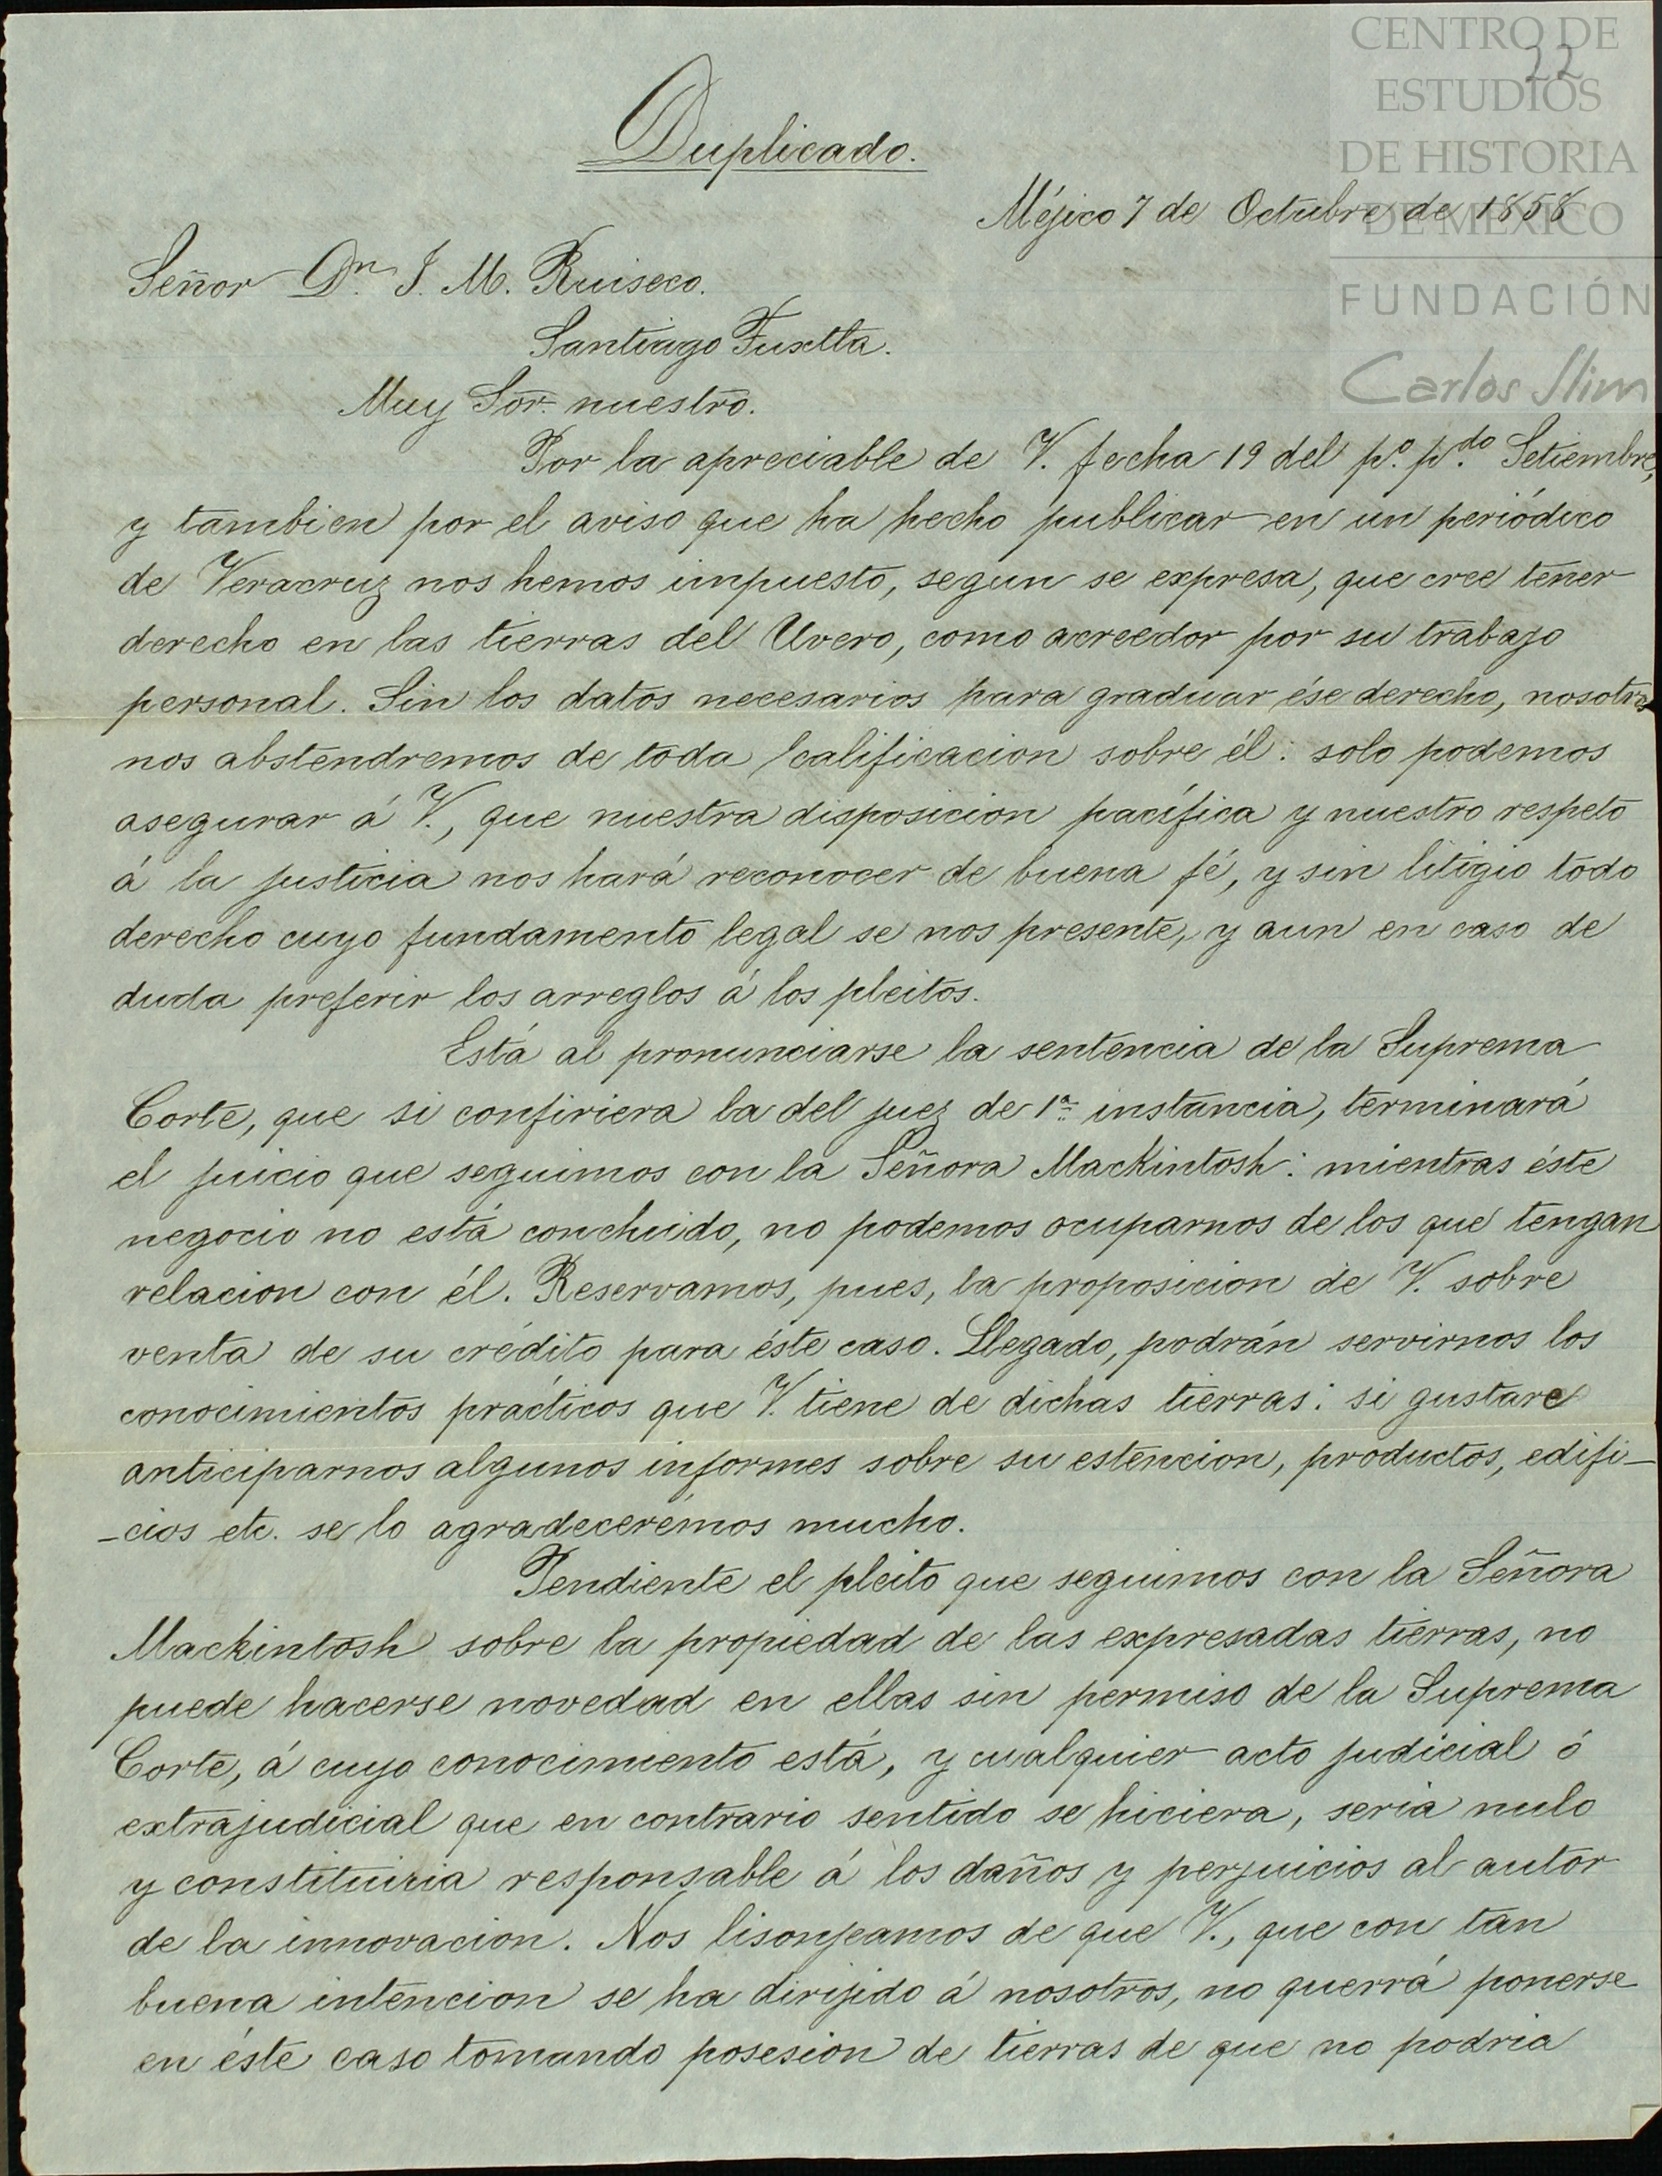 CENTRO DE
ESTUDIOS
DE HISTORIA
DE MÉXICO
FUNDACIÓN
Carlos Slim
22
Duplicado.
Méjico 7 de Octubre de 1858
Señor Dn. J. M. Ruiseco.
Santiago Tuxtla.
Muy Sor. nuestro.
Por la apreciable de V. fecha 19 del po. pdo. Setiembre,
y tambien por el aviso que ha hecho publicar en un periódico
de Veracruz nos hemos impuesto, segun se expresa, que cree tener
derecho en las tierras del Uvero, como acreedor por su trabajo
personal. Sin los datos necesarios para graduar ése derecho, nosotros
nos abstendremos de toda calificacion sobre él: solo podemos
asegurar á V., que nuestra disposicion pacífica y nuestro respeto
á la justicia nos hará reconocer de buena fé, y sin litigio todo
derecho cuyo fundamento legal se nos presente, y aun en caso de
duda preferir los arreglos á los pleitos.
Está al pronunciarse la sentencia de la Suprema
Corte, que si confiriera la del juez de 1a. instancia, terminará
el juicio que seguimos con la Señora Mackintosh: mientras éste
negocio no está concluido, no podemos ocuparnos de los que tengan
relacion con él. Reservamos, pues, la proposicion de V. sobre
venta de su crédito para éste caso. Llegado, podrán servirnos los
conocimientos prácticos que V. tiene de dichas tierras: si gustare
anticiparnos algunos informes sobre su estencion, productos, edifi-
-cios etc. se lo agradecerémos mucho.
Pendiente el pleito que seguimos con la Señora
Mackintosh sobre la propiedad de las expresadas tierras, no
puede hacerse novedad en ellas sin permiso de la Suprema
Corte, á cuyo conocimiento está, y cualquier acto judicial ó
extrajudicial que en contrario sentido se hiciera, seria nulo
y constituiria responsable á los daños y perjuicios al autor
de la innovacion. Nos lisonjeamos de que V., que con tan
buena intencion se ha dirijido á nosotros, no querrá ponerse
en éste caso tomando posesion de tierras de que no podria